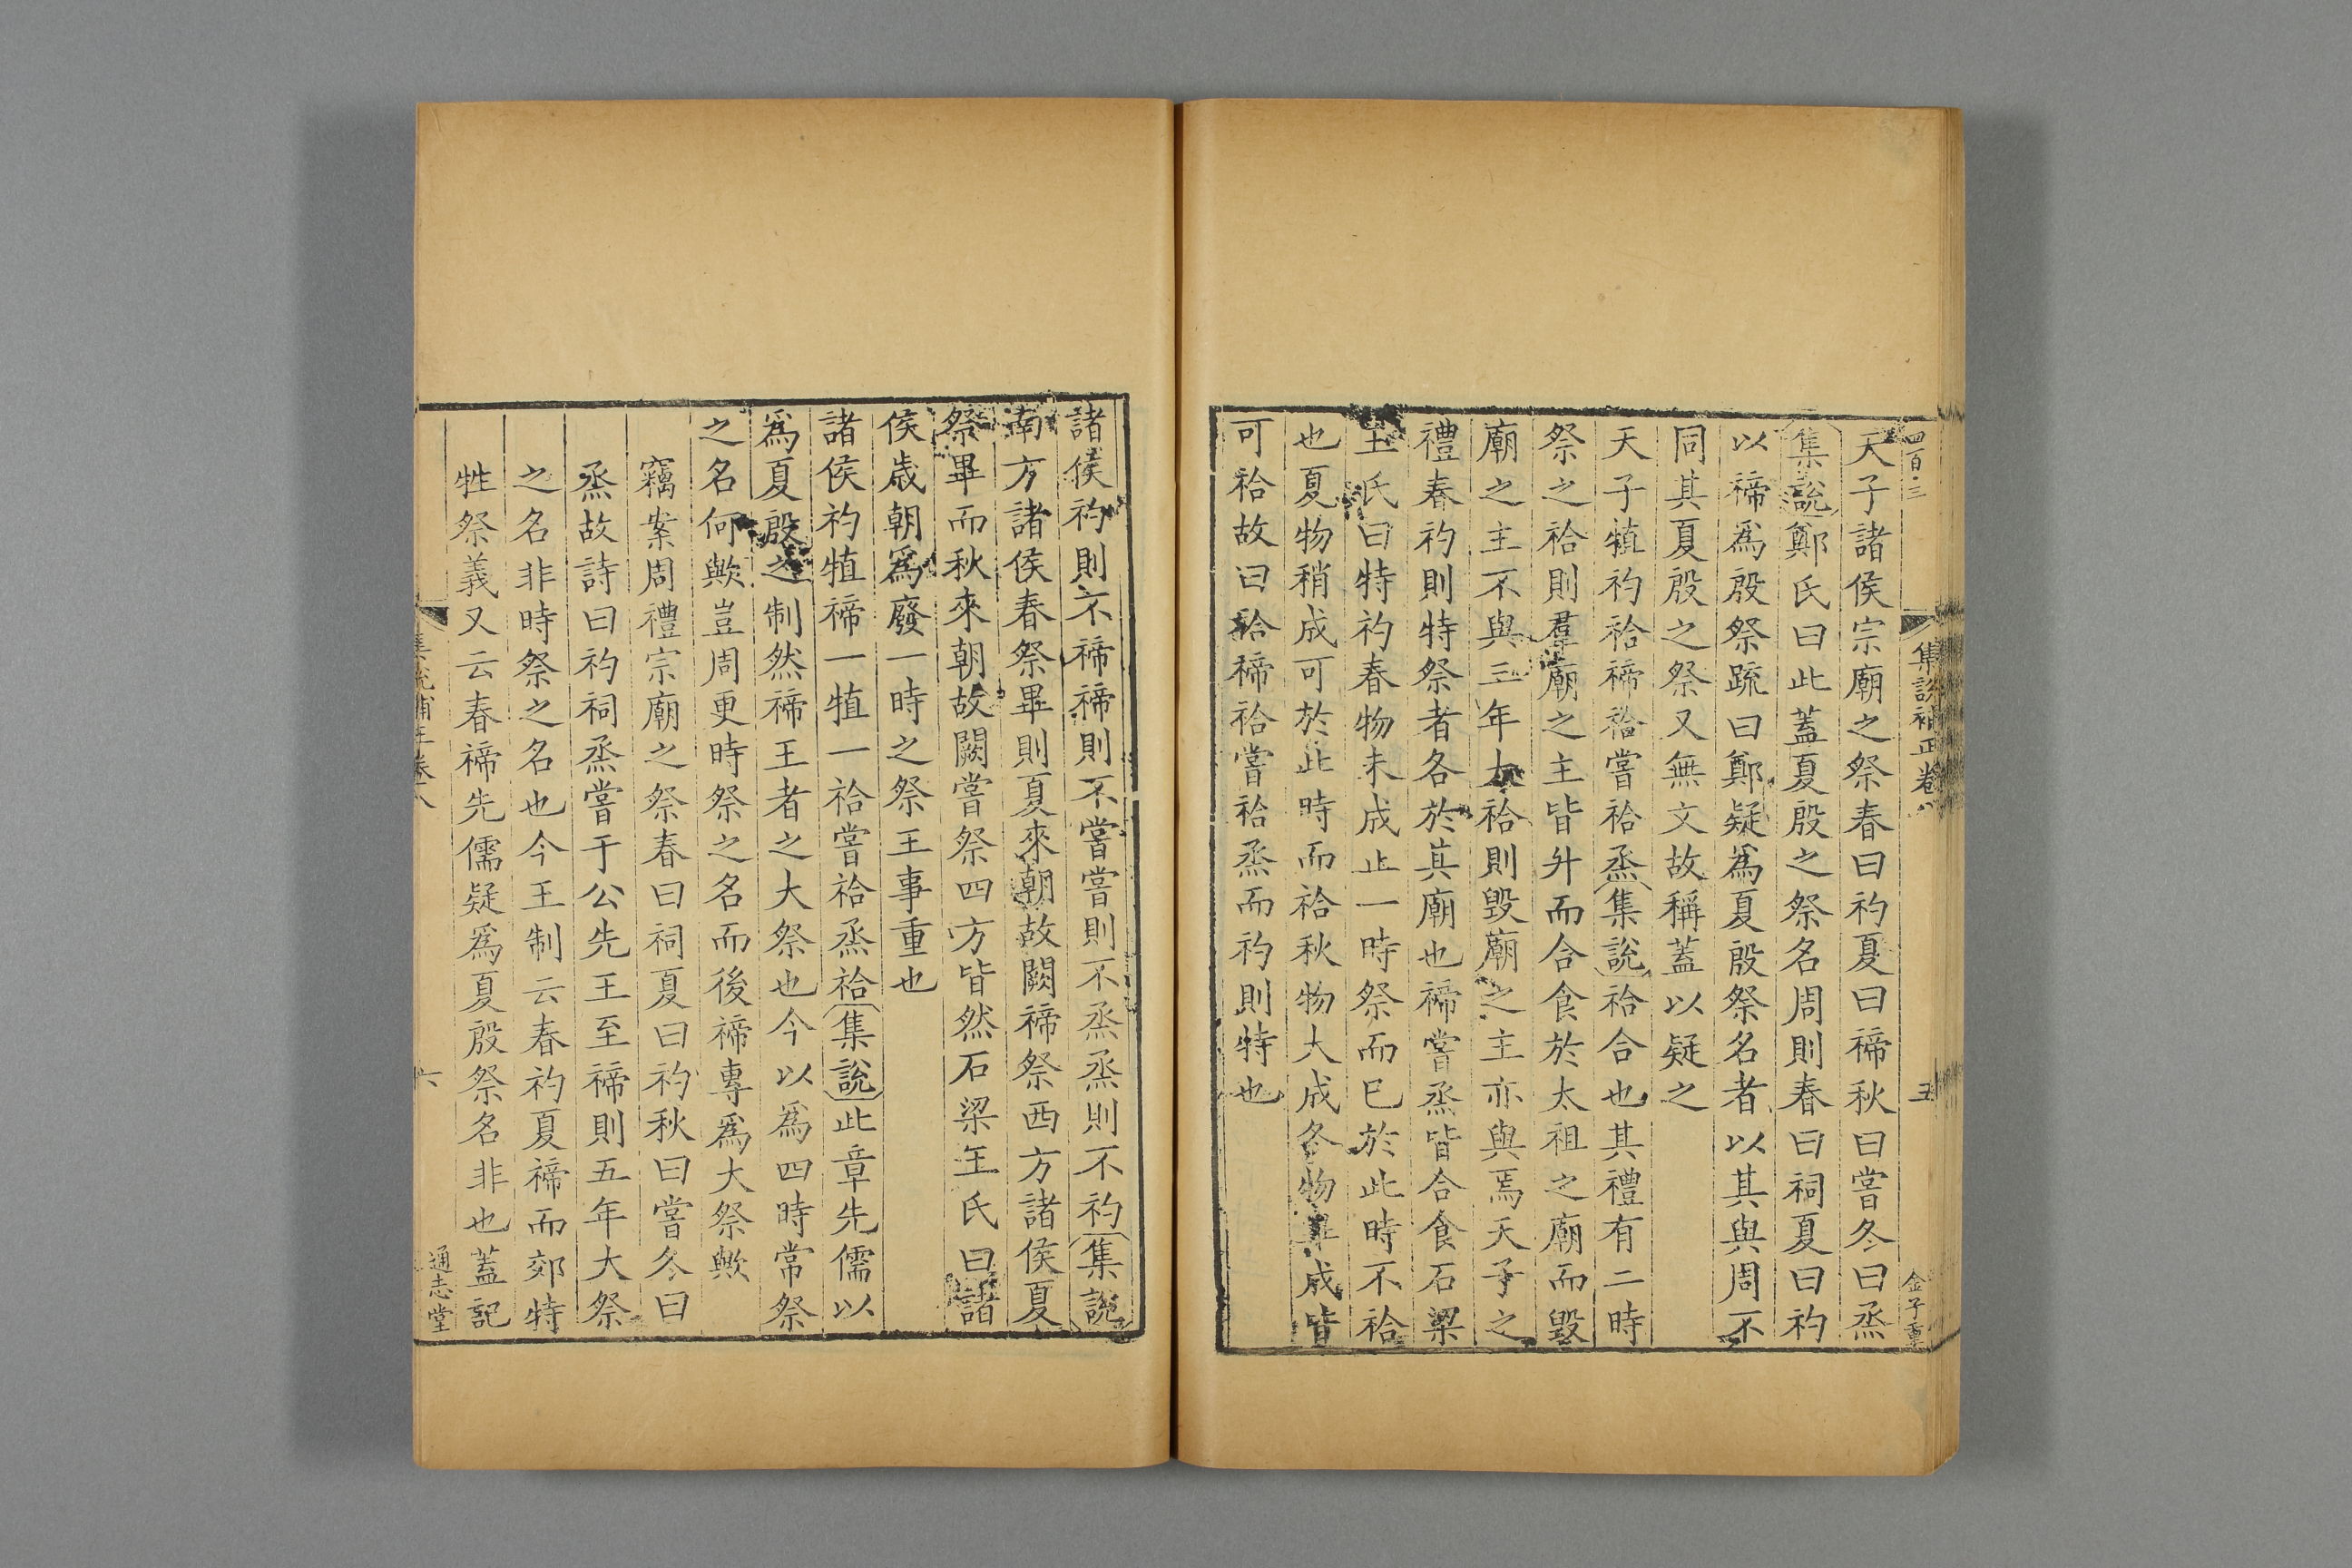 四百三
集說補正卷八
五
金子重
天子諸侯宗廟之祭春曰礿夏曰禘秋曰嘗冬曰烝
集說鄭氏曰此蓋夏殷之祭名周則春曰祠夏曰礿
以禘爲殷祭疏曰鄭疑爲夏殷祭名者以其與周不
同其夏殷之祭又無文故稱蓋以疑之
天子犆礿祫禘祫嘗祫烝集說祫合也其禮有二時
祭之祫則羣廟之主皆升而合食於太祖之廟而毀
廟之主不與三年大祫則毀廟之主亦與焉天子之
禮春礿則特祭者各於其廟也禘嘗烝皆合食石梁
王氏曰特礿春物未成止一時祭而巳於此時不祫
也夏物稍成可於此時而祫秋物大成冬物畢成皆
可祫故曰祫禘祫嘗祫烝而礿則特也
諸侯礿則不禘禘則不嘗嘗則不烝烝則不礿集說
南方諸侯春祭畢則夏來朝故闕禘祭西方諸侯夏
祭畢而秋來朝故闕嘗祭四方皆然石梁王氏曰諸
侯歲朝爲廢一時之祭王事重也
諸侯礿犆禘一犆一祫嘗祫烝祫集說此章先儒以
爲夏殷之制然禘王者之大祭也今以爲四時常祭
之名何歟豈周更時祭之名而後禘專爲大祭歟
竊案周禮宗廟之祭春曰祠夏曰礿秋曰嘗冬曰
烝故詩曰礿祠烝嘗于公先王至禘則五年大祭
之名非時祭之名也今王制云春礿夏禘而郊特
牲祭義又云春禘先儒疑爲夏殷祭名非也蓋記
集說補正卷八
六
通志堂